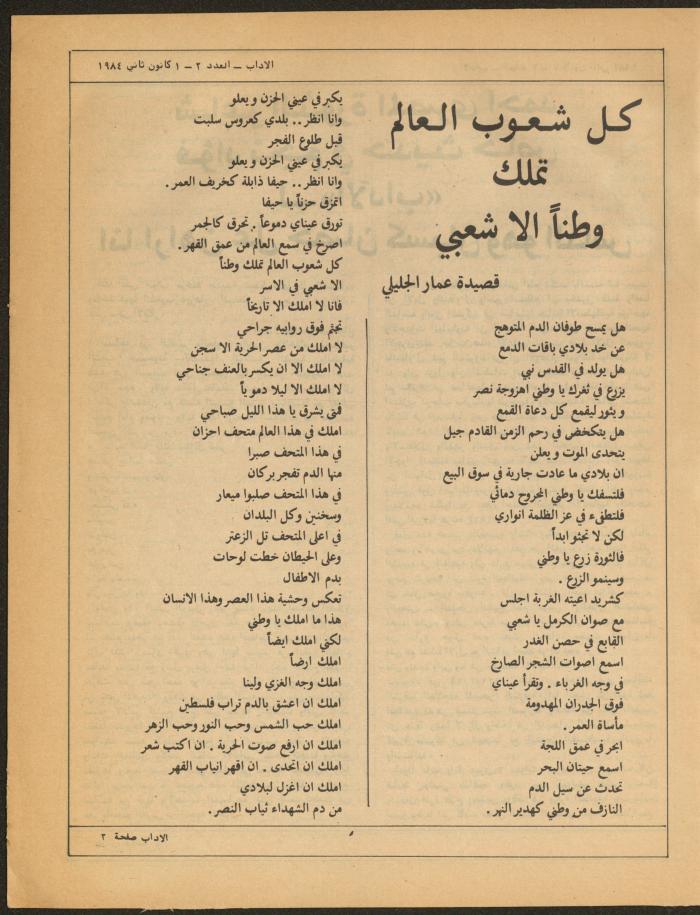 الاداب – العدد ٢ – ١ كانون ثاني ١٩٨٤
كل شعوب العالم
تملك
وطناً الا شعبي
قصيدة عمار الجليلي
هل يمسح طوفان الدم المتوهج
عن خد بلادي باقات الدمع
هل يولد في القدس نبي
يزرع في ثغرك يا وطني اهزوجة نصر
ويثور ليقمع كل دعاة القمع
هل يتكخض في رحم الزمن القادم جيل
يتحدى الموت ويعلن
ان بلادي ما عادت جارية في سوق البيع
فلتسفك يا وطني المجروح دمائي
فلتطفىء في عز الظلمة انواري
لكن لا تجثو ابداً
فالثورة زرع يا وطني
وسينمو الزرع .
كشريد اعيته الغربة اجلس
مع صوان الكرمل يا شعبي
القابع في حصن الغدر
اسمع اصوات الشجر الصارخ
في وجه الغرباء . وتقرأ عيناي
فوق الجدران المهدومة
مأساة العمر .
ابحر في عمق اللجة
اسمع حيتان البحر
تحدث عن سيل الدم
النازف من وطني كهدير النهر .
يكبر في عيني الحزن ويعلو
وانا انظر .. بلدي كعروس سلبت
قبل طلوع الفجر
يكبر في عيني الحزن ويعلو
وانا انظر .. حيفا ذابلة كخريف العمر .
اتمزق حزناً يا حيفا
تورق عيناي دموعاً . تحرق كالجمر
اصرخ في سمع العالم من عمق القهر .
كل شعوب العالم تملك وطناً
الا شعبي في الاسر
فانا لا املك الا تاريخاً
تجثم فوق روابيه جراحي
لا املك من عصر الحرية الا سجن
لا املك الا ان يكسر بالعنف جناحي
لا املك الا ليلا دموياً
فمتى يشرق يا هذا الليل صباحي
املك في هذا العالم متحف احزان
في هذا المتحف صبرا
منها الدم تفجر بركان
في هذا المتحف صلبوا ميعار
وسخنين وكل البلدان
في اعلى المتحف تل الزعتر
وعلى الحيطان خطت لوحات
بدم الاطفال
تعكس وحشية هذا العصر وهذا الانسان
هذا ما املك يا وطني
لكني املك ايضاً
املك ارضاً
املك وجه الغزي ولينا
املك ان اعشق بالدم تراب فلسطين
املك حب الشمس وحب النور وحب الزهر
املك ان ارفع صوت الحرية . ان اكتب شعر
املك ان اتحدى . ان اقهر انياب القهر
املك ان اغزل لبلادي
من دم الشهداء ثياب النصر .
الاداب صفحة ٢